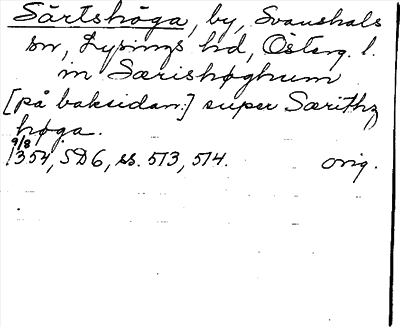 Särtshöga, by, Svanshals
sn, Lysings hd, Österg. l.
in Særishøghum
[på baksidan:] super Særithz
høga.
9/8
1354, SD6, ss. 513, 514. orig.